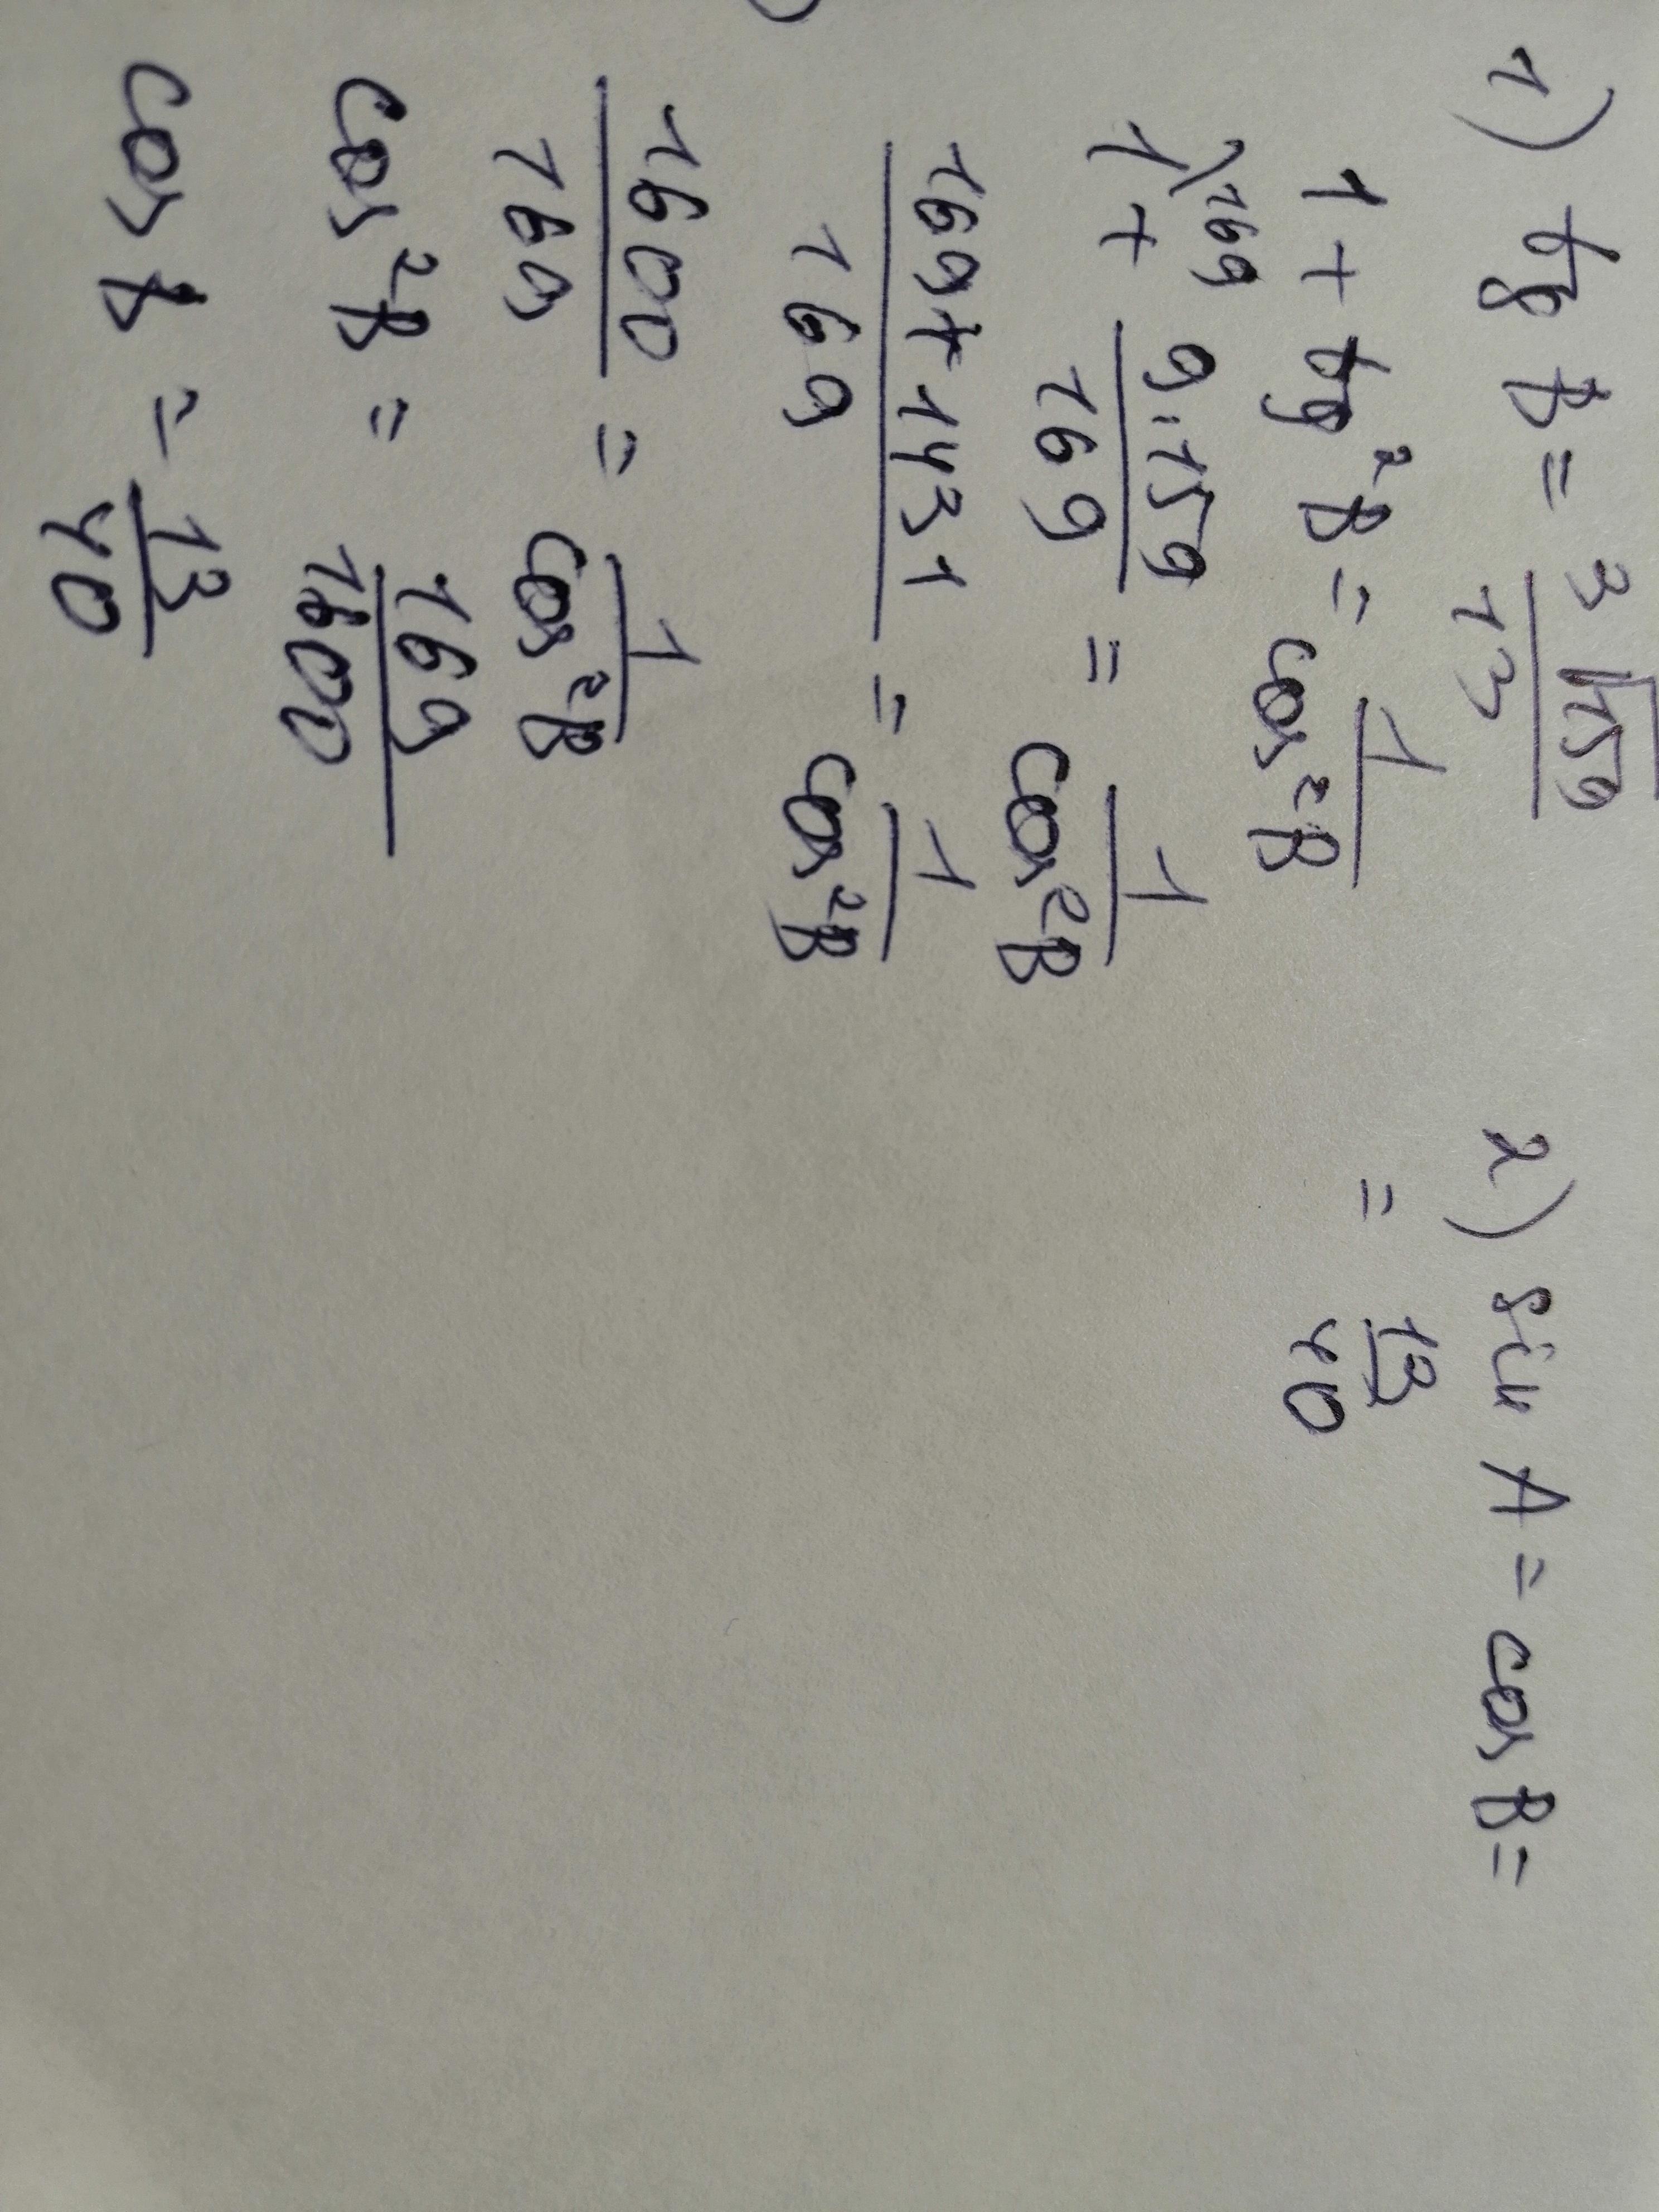 1) tg B = 3√159/13
1 + tg²B = 1/cos²B
1\169 + 9·159/169 = 1/cos²B
169+1431/169 = 1/cos²B
1600/169 = 1/cos²B
cos²B = 169/1600
cos B = 13/40
2) sin A = cos B =
= 13/40